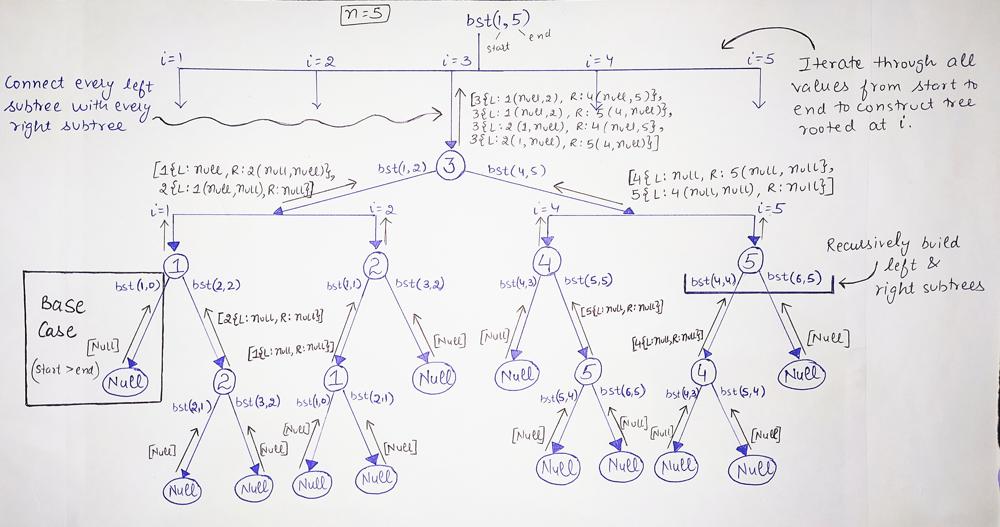 n=5
bst(1,5)
start end
i=1
i=2
i=3
i=4
i=5
Connect every left
subtree with every
right subtree
Iterate through all
values from start to
end to construct tree
rooted at i.
[3{L: 1(null,2), R: 4(null,5)},
3{L: 1(null,2), R: 5(4,null)},
3{L: 2(1,null), R: 4(null,5},
3{L: 2(1,null), R: 5(4,null)}]
[1{L: null, R: 2(null,null)},
2{L: 1(null,null), R: null}]
bst(1,2)
3
bst(4,5)
[4{L: null, R: 5(null,null},
5{L: 4(null,null), R: null}]
i=1
i=2
i=4
i=5
1
2
4
5
Recursively build
left &
right subtrees
bst(1,0)
bst(2,2)
bst(1,1)
bst(3,2)
bst(4,3)
bst(5,5)
bst(4,4)
bst(6,5)
Base
Case
(start > end)
[Null]
[2{L: null, R: null}]
[1{L: null, R: null}]
[Null]
[Null]
[5{L: null, R: null}]
[4{L: null, R: null}]
[Null]
Null
2
1
Null
Null
5
4
Null
bst(2,1)
bst(3,2)
bst(1,0)
bst(2,1)
bst(5,4)
bst(6,5)
bst(4,3)
bst(5,4)
[Null]
[Null]
[Null]
[Null]
[Null]
[Null]
[Null]
[Null]
Null
Null
Null
Null
Null
Null
Null
Null